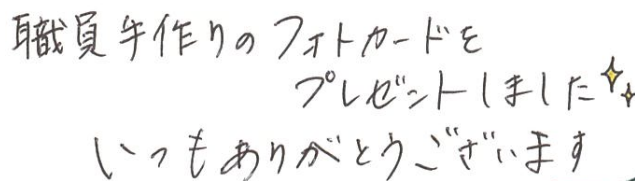 職員手作りのフォトカードを
プレゼントしました
いつもありがとうございます